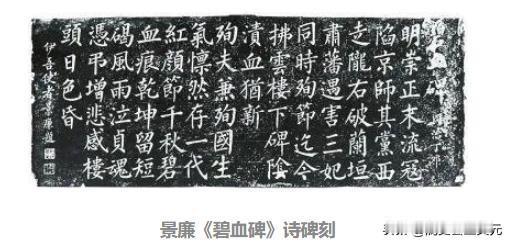 碧血碑
明崇正末流寇
陷京師其黨西
走隴右破蘭垣
肅藩遇害三妃
同時殉節迄今
拂雲樓下碑陰
漬血猶新
殉夫兼殉國生
氣懍然存一代
紅顏節千秋碧
血痕乾坤留短
碣風雨泣貞魂
憑弔增悲感樓
頭日色昏
伊吾使者景廉題
景廉《碧血碑》诗碑刻